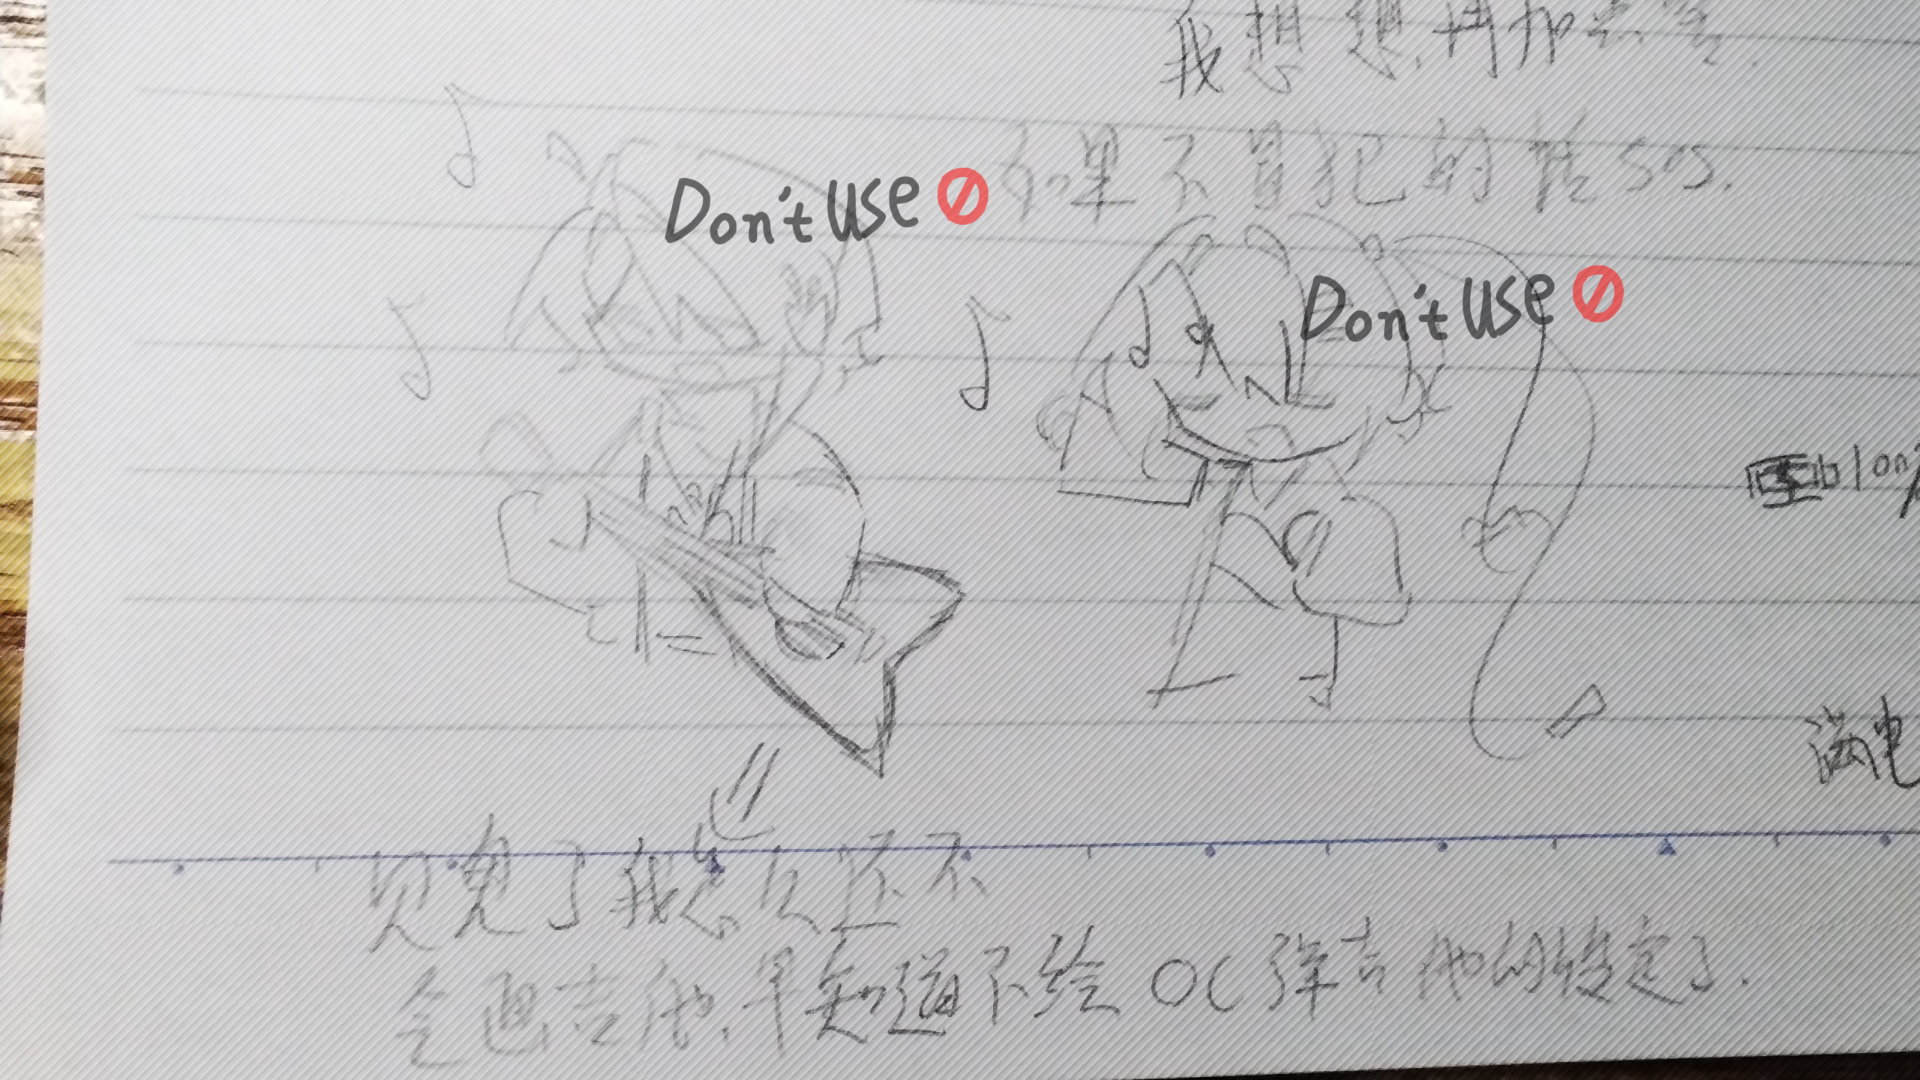 我想想,再加点雪.
如果不冒犯的话SOS.
Don't use
Don't use
满电
见鬼了我怎么还不
会画吉他,早知道不给OC弹吉他的设定了.